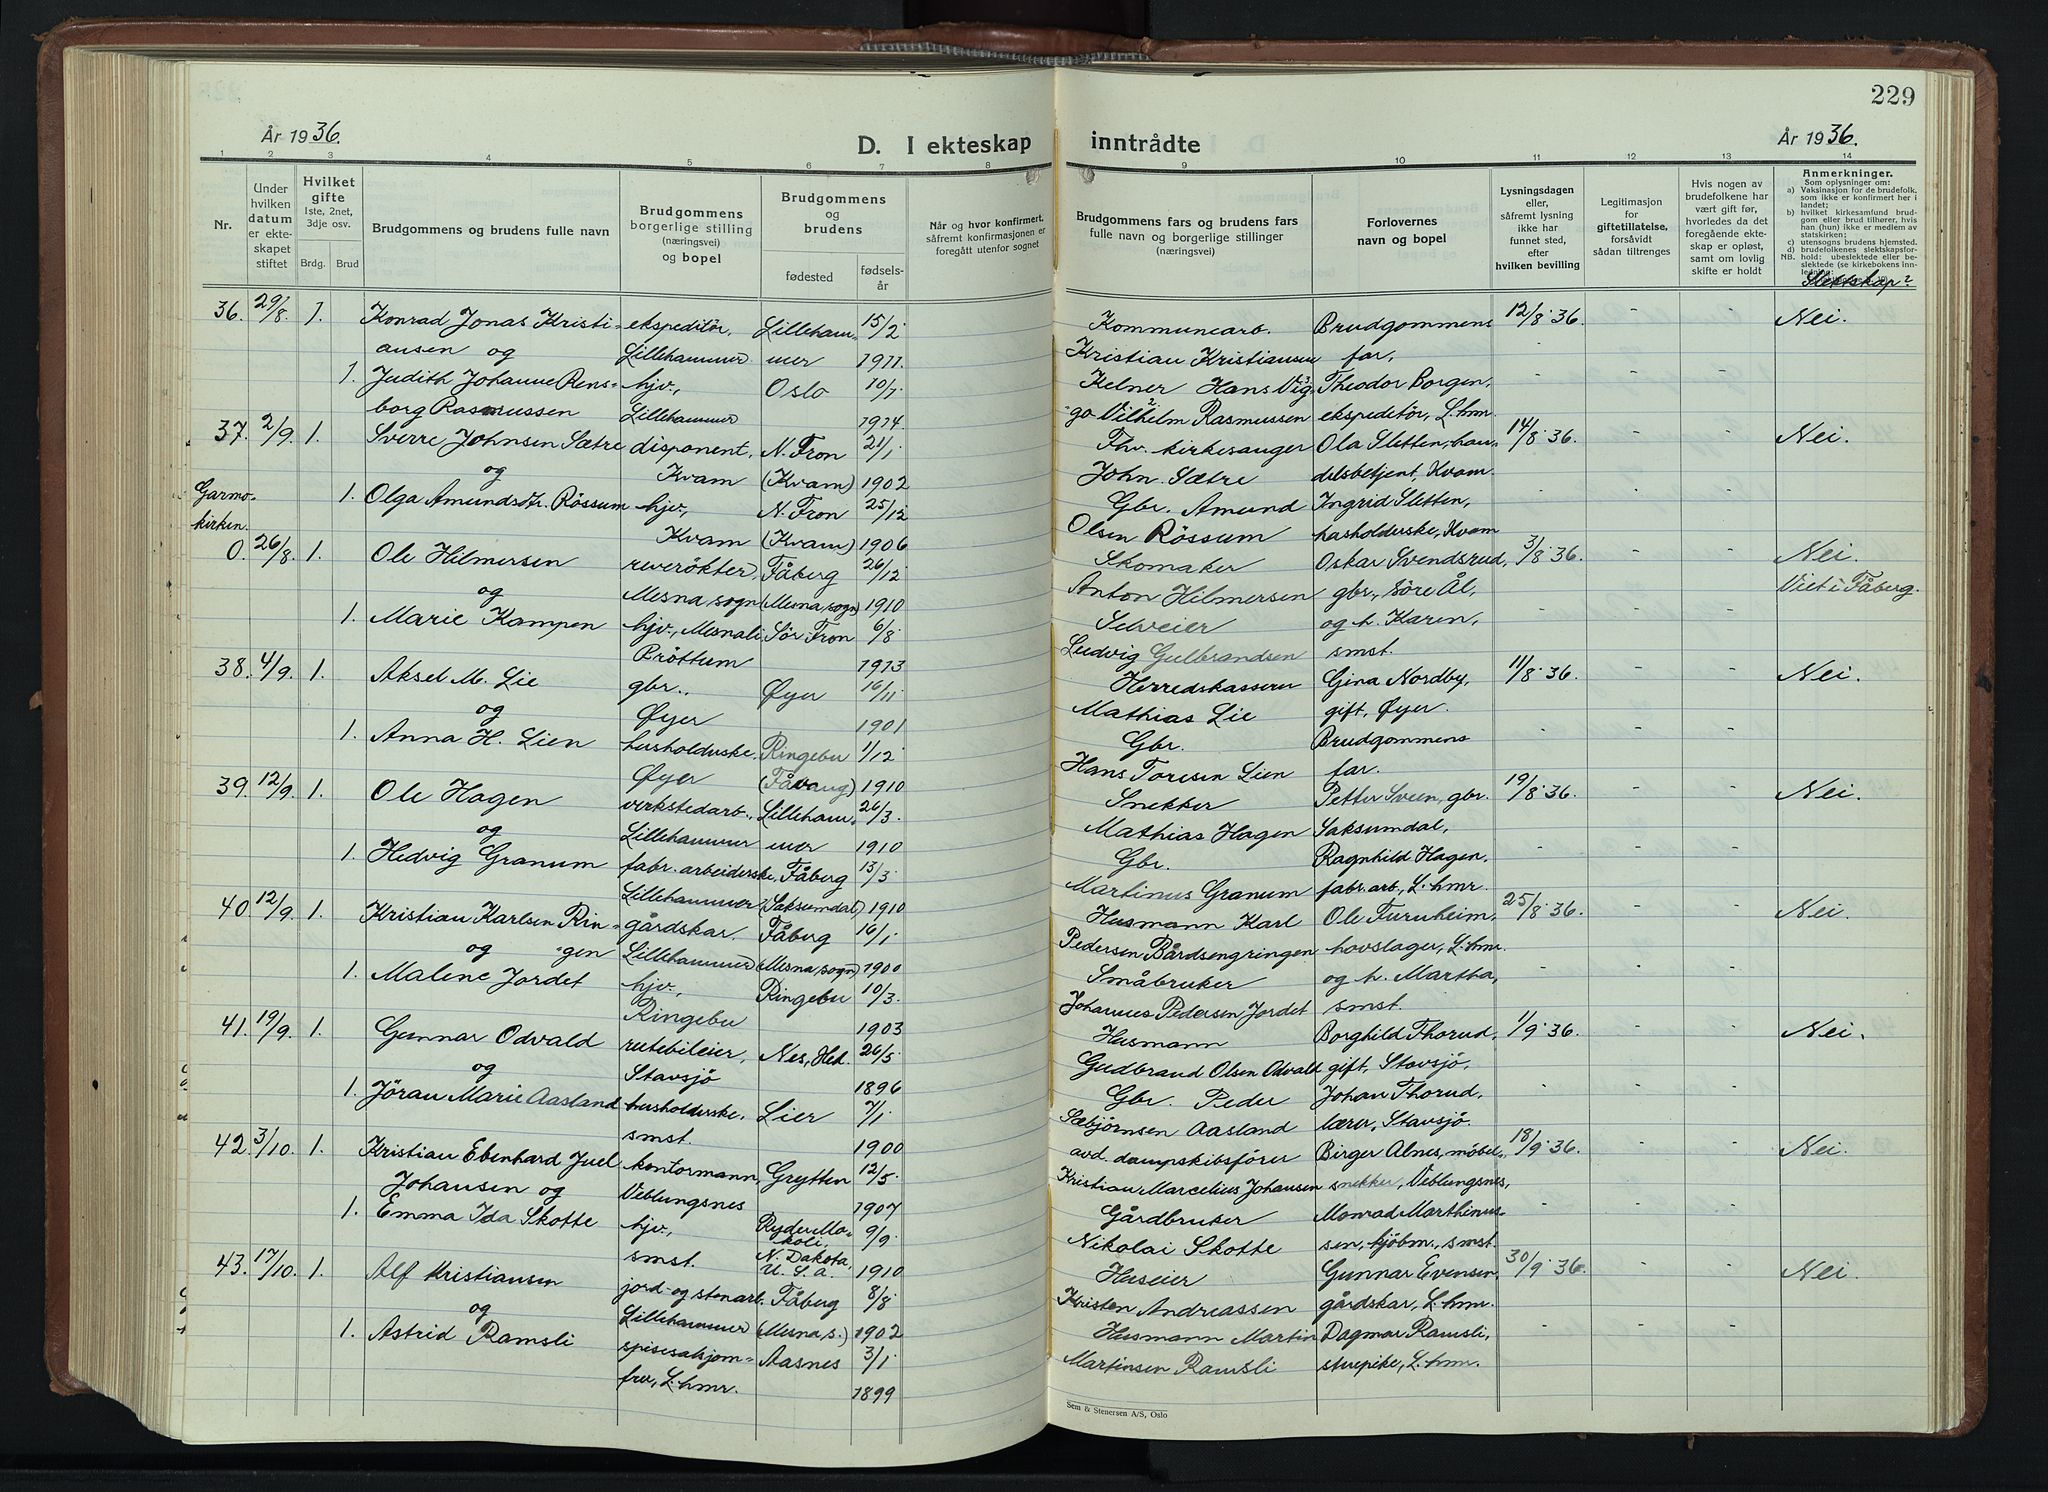 229
År 1936.
D. I ekteskap inntrådte
År 1936.
1 2 3 4 5 6 7 8 9 10 11 12 13 14
Nr.
Under hvilken datum er ekteskapet stiftet
Hvilket gifte
1ste, 2net, 3dje osv.
Brdg. Brud
Brudgommens og brudens fulle navn
Brudgommens borgerlige stilling (næringsvei) og bopel
Brudgommens og brudens
fødested
fødselsår
Når og hvor konfirmert, såfremt konfirmasjonen er foregått utenfor sognet
Brudgommens fars og brudens fars fulle navn og borgerlige stillinger (næringsvei)
Forlovernes navn og bopel
Lysningsdagen eller, såfremt lysning ikke har funnet sted, efter hvilken bevilling
Legitimasjon for giftetillatelse, forsåvidt sådan tiltrenges
Hvis nogen av brudefolkene har vært gift før, hvorledes da det foregående ekteskap er opløst, samt om lovlig skifte er holdt
Anmerkninger.
Som oplysninger om:
a) Vaksinasjon for de brudefolk, som ikke er konfirmert her i landet;
b) hvilket kirkesamfund brudgom eller brud tilhører, hvis han (hun) ikke er medlem av statskirken;
c) utensogns brudens hjemsted.
d) brudefolkenes slektskapsforhold: ubeslektede eller beslektede (se kirkebokens innledning
NB.
Slektskap?
36. 29/8. 1. Konrad Jonas Kristi- ekspeditör, Lilleham- 15/2 Kommunearb. Brudgommens 12/8 36. - - Nei.
ansen og Lillehammer mer 1911. Kristian Kristiansen far,
1. Judith Johanne Rens- hjv., Oslo 10/7 Kelner Hans Vig- Theodor Borgen,
borg Rasmussen Lillehammer 1914 go Vilhelm Rasmussen ekspeditör, L.hmr.
37. 2/9. 1. Sverre Johnsen Sætre disponent, N. Fron 21/1 Fhv. kirkesanger Ola Sletten, han- 14/8 36. - - Nei.
og Kvam (Kvam) 1902 John Sætre delsbetjent, Kvam
Garmo- 1. Olga Amundsdtr. Rössum hjv., N. Fron 25/12 Gbr. Amund Ingrid Sletten,
kirken. Kvam (Kvam) 1906 Olsen Rössum husholderske, Kvam
0. 26/8. 1. Ole Hilmersen reverökter, Fåberg 26/12 Skomaker Oskar Svendsrud, 3/8 36. - - Nei.
og Mesna sogn (Mesna sogn) 1910 Anton Hilmersen gbr., Söre Ål, Viet i Fåberg.
1. Marie Kampen hjv., Mesnali Sör Fron 6/8 Selveier og h. Karen,
Bröttum 1913 Ludvig Gulbrandsen smst.
38. 4/9. 1. Aksel M. Lie gbr., Øyer 16/11 Herredskasserer Gina Nordby, 11/8 36. - - Nei.
og Øyer 1901 Mathias Lie gift, Øyer.
1. Anna H. Lien husholderske, Ringebu 1/12 Gbr. Brudgommens
Øyer (Fåvang) 1910 Hans Toresen Lien far.
39. 12/9. 1. Ole Hagen verkstedarb., Lilleham- 26/3. Snekker Petter Sveen, gbr. 19/8 36. - - Nei.
og Lillehammer mer 1910 Mathias Hagen Saksumdal,
1. Hedvig Granum fabr. arbeiderske, Fåberg 13/3 Gbr. Ragnhild Hagen,
Lillehammer (Saksumdal) 1910 Martinus Granum fabr. arb., L.hmr.
40. 12/9. 1. Kristian Karlsen Rin- gårdskar. Fåberg 16/1 Husmann Karl Ole Furuheim, 25/8 36. - - Nei.
og -gen Lillehammer (Mesna sogn) 1900 Pedersen Bårdsengringen hovslager, L.hmr.
1. Malene Jordet hjv., Ringebu 10/3. Småbruker og h. Martha,
Ringebu 1903 Johannes Pedersen Jordet smst.
41. 19/9. 1. Gunnar Odvald rutebileier, Nes, Hed. 26/5 Husmann Borghild Thorud, 1/9 36. - - Nei.
og Stavsjö 1896 Gudbrand Olsen Odvald gift, Stavsjö,
1. Jöran Marie Aasland husholderske, Lier 7/1 Gbr. Peder Johan Thorud,
smst. 1900 Sæbjörnsen Aasland lærer, Stavsjö.
42. 3/10. 1. Kristian Ebenhard Juel kontormann, Grytten 12/5 avd. dampskibsförer Birger Alnes, möbel- 18/9 36. - - Nei.
Johansen og Veblungsnes 1907 Kristian Marcelius Johansen snekker, Veblungsnes,
1. Emma Ida Skotte hjv., Ryder, Mo- 9/9 Gårdbruker Monrad Marthinus-
smst. koli, N. Dakota, U. S. A. 1910 Nikolai Skotte sen, kjöbm., smst.
43. 17/10. 1. Alf Kristiansen jord- og stenarb. Fåberg 8/8 Huseier Gunnar Evensen, 30/9 36. - - Nei.
og Lillehammer (Mesna s.) 1902 Kristen Andreassen gårdskar, L.hmr.
1. Astrid Ramsli spisesalsjom- Aasnes 3/1 Husmann Martin Dagmar Ramsli,
fru, L.hmr. 1899 Martinsen Ramsli stuepike, L.hmr.
Sem & Stenersen A/S, Oslo